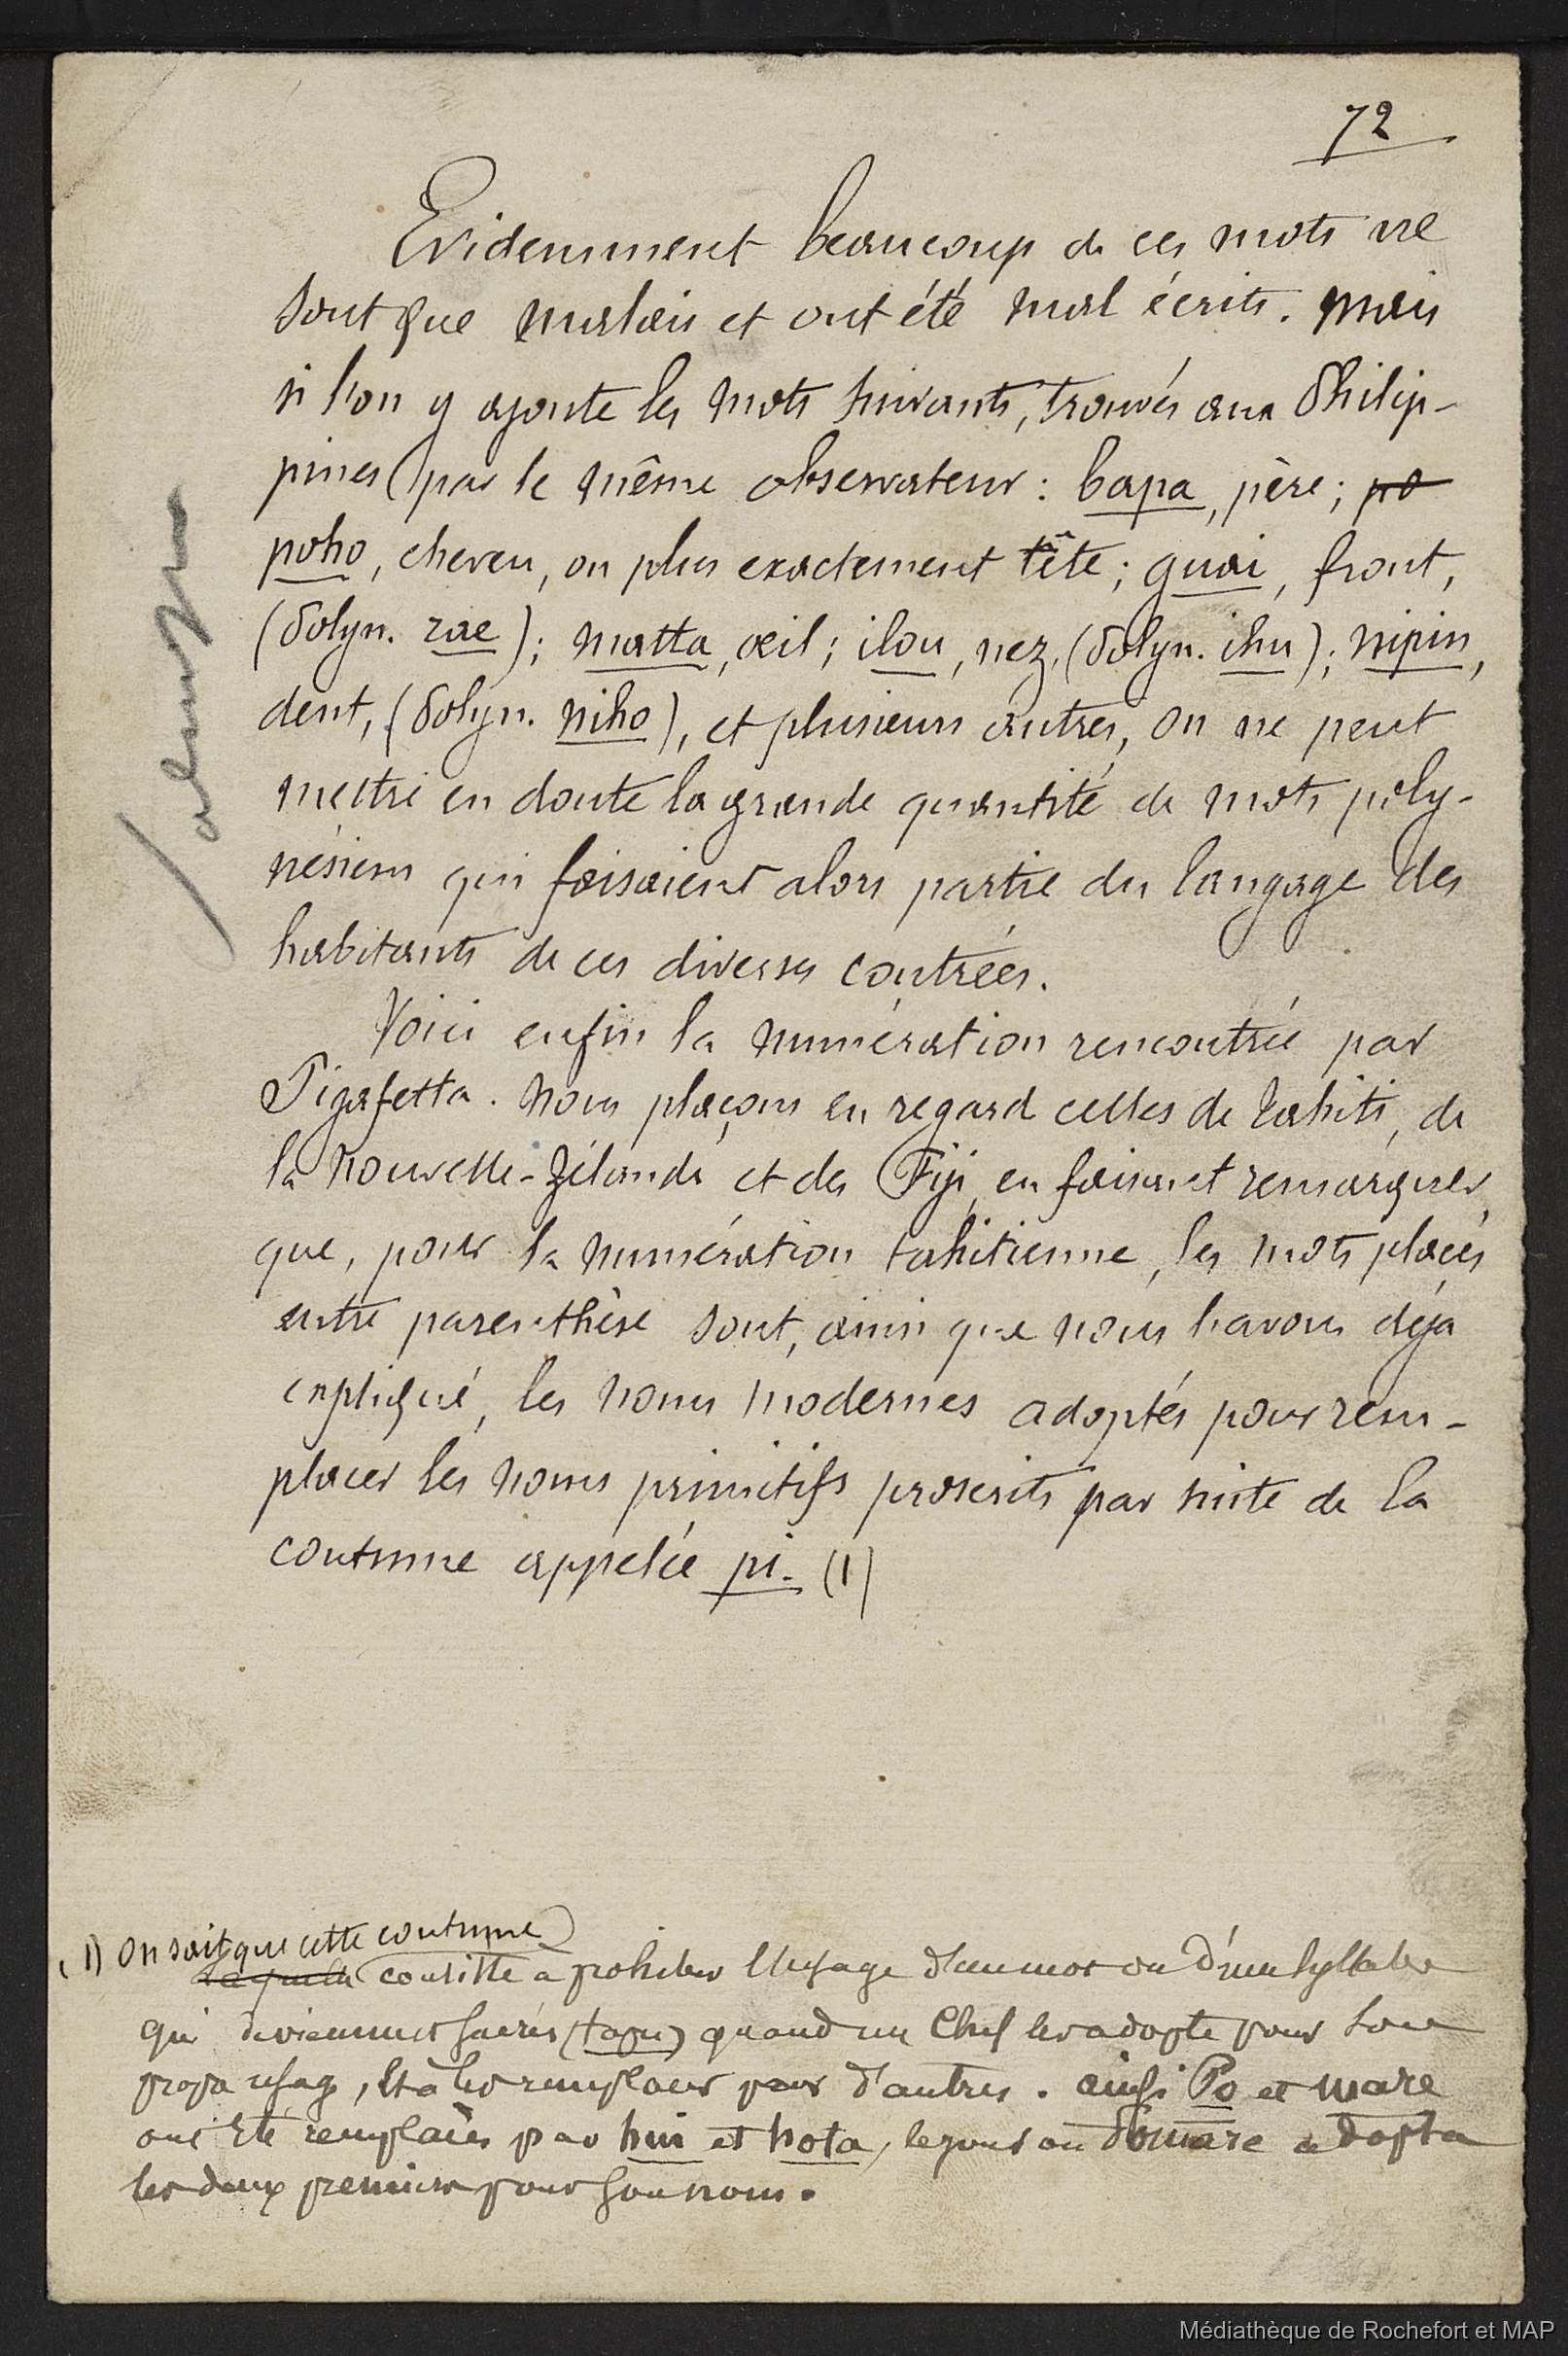 72
Evidemment beaucoup de ces mots ne
sont que malais et ont été mal écrits. Mais
si l'on y ajoute les mots suivants, trouvés aux Philip-
pines par le même observateur : bapa, père ; po
poho, cheveu, ou plus exactement tête ; guai, front,
(Polyn. rae) ; matta, œil ; ilou, nez, (Polyn. ihu) ; nipin,
dent, (Polyn. niho), et plusieurs autres, on ne peut
mettre en doute la grande quantité de mots poly-
nésiens qui faisaient alors partie du langage des
habitants de ces diverses contrées.
Voici enfin la numération rencontrée par
Pigafetta. Nous plaçons en regard celles de Tahiti, de
la Nouvelle-Zélande et des Fiji, en faisant remarquer
que, pour la numération tahitienne, les mots placés
entre parenthèse sont, ainsi que nous l'avons déja
expliqué, les noms modernes adoptés pour rem-
placer les noms primitifs proscrits par suite de la
coutume appelée pi. (1)
(1) On sait que cette coutume
laquelle consiste a prohiber l'usage d'un mot ou d'une syllabe
qui deviennent sacrés (tapu) quand un Chef les adopte pour son
propre usage, et à les remplacer par d'autres. ainsi Po et mare
ont été remplacés par hui et hota, le jour où Pomare adopta
les deux premiers pour son nom.